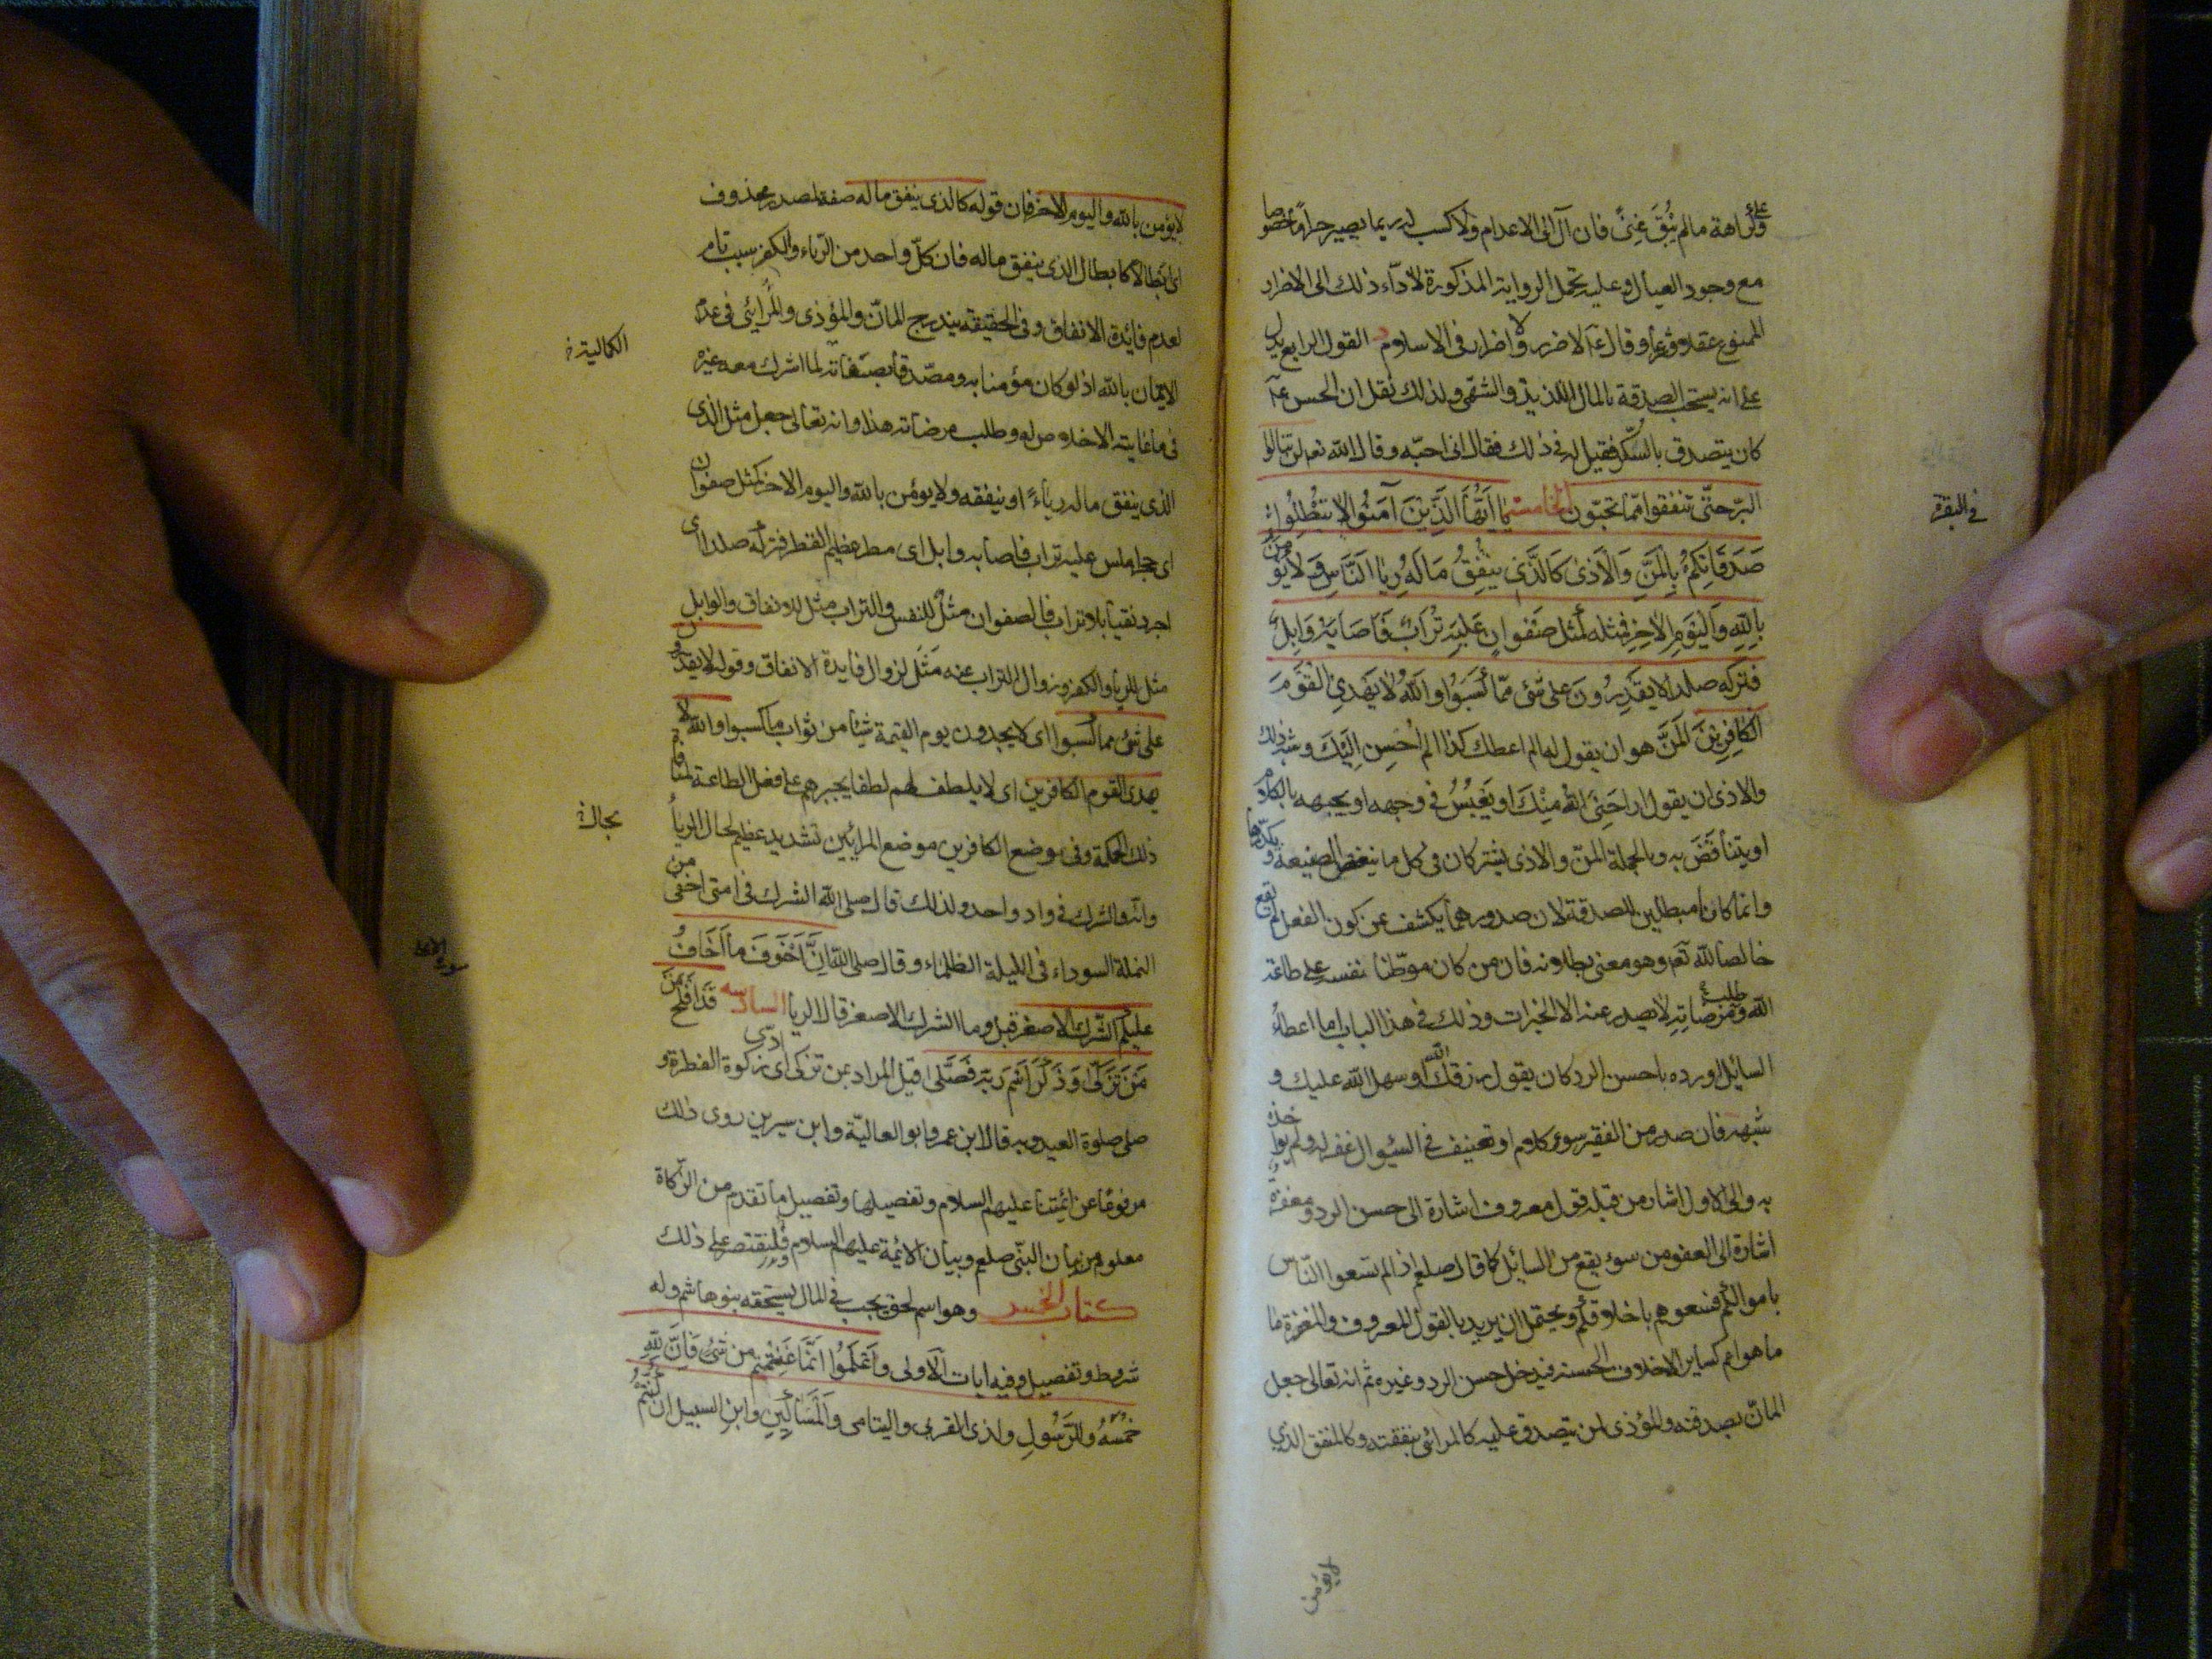 وكراهة ما لم يُبقَ غِنىً فان آل الى الاعدام ولا كسب له ربما يصير حراماً خصوصا
مع وجود العيال وعليه تحمل الرواية المذكورة لاداء ذلك الى الاضرار
الممنوع عقلا وشرعا وقال عم لا ضرر ولا اضرار فى الاسلام القول الرابع يدل
على انه يستحب الصدقة بالمال اللذيذ والشهى ولذلك نقل ان الحسن عم
كان يتصدق بالسكر فقيل له فى ذلك فقال انى احبّه وقال الله تعم لن تنالوا
البرّ حتّى تنفقوا ممّا تحبّون الخامسة يَا اَيُّهَا الَّذِيْنَ آمَنُوا لا تُبْطِلُوا
صَدَقَاتِكُمْ بِالْمَنِّ وَالْاَذى كَالَّذِى يُنْفِقُ مَالَهُ رِيَا النَّاسِ وَلا يُؤْمِنُ
بِاللهِ وَالْيَوْمِ الاخِرِ فمثله كمثل صَفْوانٍ عَلَيْهِ تُرَابٌ فَاَصَابَهُ وَابِلٌ
فتركه صلدا لا يَقْدِرُونَ على شئ ممّا كَسَبُوا وَاللهُ لا يَهْدِى الْقَوْمَ
الْكَافِرِيْنَ الْمَنّ هو ان يقول له الم اعطك كذا الم اُحْسِن اِلَيْكَ وشبه ذلك
والاذى ان يقول اراحَنِىَ اللهُ مِنْكَ او يَعْبِسُ فى وجهه او يجبهه بالكلام
او يتناقَصَ به وبالجملة المنّ والاذى يشتركان فى كل ما ينغص الصنيعة ويكدّرها
وانما كانا مبطلين للصدقة لان صدورهما يكشف عن كون الفعل لم يقع
خالصا لله تعم وهو معنى بطلانه فان من كان موطّنا نفسه على طاعة
الله وطلب مرضاتِهِ لا يصدر عنه الا الخيرات وذلك فى هذا الباب اما اعطاء
السايل او رده باحسن الرد كان يقول رزقك الله او سهل الله عليك و
شبهه فان صدر من الفقير سوء كلام او تعنيف فى السئوال غفر له ولم يواخذه
به والى الاول اشار من قبله قول معروف اشارة الى حسن الرد ومغفرة
اشارة الى العفو من سوء يقع من السائل كما قال صلعم اذا لم تسعوا النّاس
باموالكم فسعوهم باخلاقكم ويحتمل ان يريد بالقول المعروف والمغفرة ما
ما هو اعم كساير الاخلاق الحسنة فيدخل حسن الرد وغيره ثم انه تعالى جعل
المانّ بصدقته والمؤذى لمن يتصدق عليه كالمرائى بنفقته وكالمنفق الذي
فى البقرة
لا يؤمن
لا يؤمن بالله واليوم الاخر فان قوله كالذى ينفق ماله صفة لمصدر محذوف
اى ابطالا كابطال الذى ينفق ماله فان كلّ واحد من الرّياء والكفر سبب تام
لعدم فائدة الانفاق وفى الحقيقة يندرج المانّ والمؤذى والمُرائى فى عدم
الايمان بالله اذ لو كان مؤمنا به ومصدقا بصفاته لما اشرك معه غيره
فى ما غايته الاخلاص له وطلب مرضاته هذا وانه تعالى جعل مثل الذى
الذى ينفق ماله رياءً او ينفقه ولا يؤمن بالله واليوم الاخر كمثل صفوان
اى حجر املس عليه تراب فاصابه وابل اى مطر عظيم القطر فتركه صلدا اى
اجرد نقيا بلا تراب فالصفوان مثلٌ للنفس والتراب مثل للانفاق والوابل
مثل للرياء والكفر وزوال التراب عنه مَثَل لزوال فايدة الانفاق وقوله لا يقدرون
على شئ مما كسبوا اى لا يجدون يوم القيمة شيئا من ثواب ما كسبوا والله لا
يهدى القوم الكافرين اى لا يلطف لهم لطفا يجبرهم على فعل الطاعة لمنافاة
ذلك الحكمة وفى وضع الكافرين موضع المرايين تشديد عظيم لحال الرياء
وانّه والشرك فى واد واحد ولذلك قال صلى الله الشرك فى امتى اخفى من
النملة السوداء فى الليلة الظلماء وقال صلى الله اِنَّ اَخْوَفَ ما اَخَافُ
عليكم الشّرك الاصغر قيل وما الشرك الاصغر قال الريا السادسة قَدْ اَفْلَحَ
مَنْ تَزَكّى وَذَكَرَ اسْمَ رَبِّهِ فَصَلَّى قيل المراد بمن تزكى اى ادى زكوة الفطرة و
صلى صلوة العيد وبه قال ابن عمر وابو العاليّة وابن سيرين روى ذلك
مرفوعًا عن ائمّتنا عليهم السلام وتفصيلها وتفصيل ما تقدم من الزّكاة
معلوم من بيان النبّى صلعم وبيان الائمّة عليهم السلام فلنقتصر على ذلك
كتاب الخمس وهو اسم لحق يجب فى المال يستحقه بنو هاشم وله
شروط وتفصيل وفيه ايات الاولى وَاعْلَمُوا اَنَّمَا غَنِمْتُمْ من شئ فَاِنَّ لِلّٰهِ
خُمُسَهُ وللرَّسُولِ ولذى القربى واليتامى وَالْمَسَاكِينِ وابنِ السبيل ان كُنْتُمْ